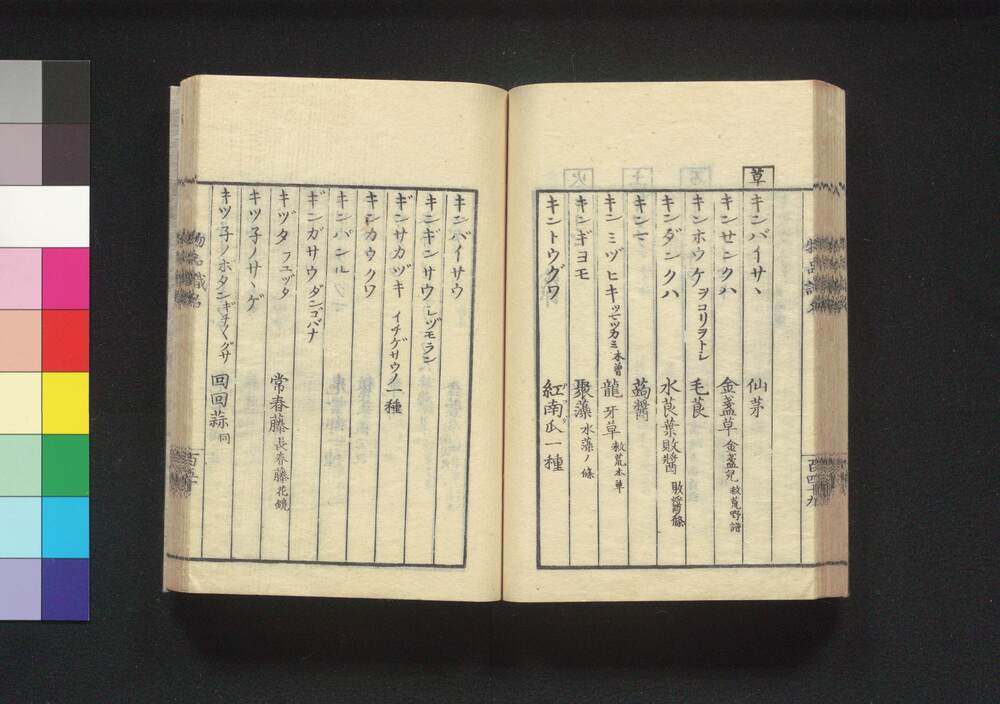 草
キンバイサヽ 仙茅
キンセンクハ 金盞草 金盞兒 救荒野譜
キンホウケ ヲコリヲトシ 毛茛
キンダンクハ 水茛葉敗醬 敗醬條
キンマ 蒟醬
キンミヅヒキ ヒッツカミ 木曽 龍牙草 救荒本草
キンギヨモ 聚藻 水藻ノ條
キントウグワ 紅南瓜一種
百四十九
キンバイサウ
キンギンサウ レヅモラン
ギンサカヅキ イチゲサウノ一種
キンカウクワ
キンパンル
ギンガサウ ダンゴバナ
キヅタ フユヅタ 常春藤 長春藤 花鏡
キツ子ノサヽゲ
キツ子ノボタン ギチ〱グサ 回回蒜 同
物品識名